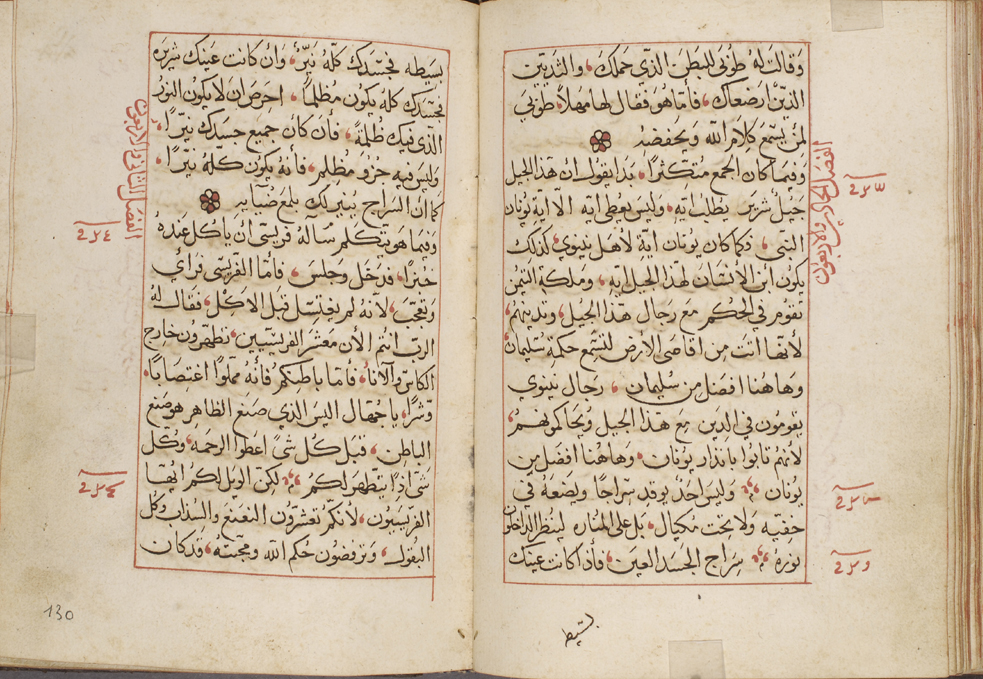 وقالت له طوبى للبطن الذي حملك، والثديين
الذين ارضعاك، فأما هو فقال لها مهلاً، طوبى
لمن يسمع كلام الله ويحفضه
وفيما كان الجمع متكثرا، بدا يقول ان هذا الجيل
جيل شرير يطلب ايه، وليس يعطى ايه الا اية يونان
النبي، فكما كان يونان اية لأهل نينوي، كذلك
يكون ابن الأنسان لهذا الجيل ايه، وملكة التيمن
تقوم في الحكم مع رجال هذا الجيل، وتدينهم،
لأنها اتت من اقاصي الأرض لتسمع حكمة سليمان،
وهاهنا افضل من سليمان، رجال نينوي
يقومون في الدين مع هذا الجيل ويحاكمونهم،
لأنهم تابوا بانذار يونان، وهاهنا افضل من
يونان وليس احد يوقد سراجا ويضعه في
خفيه ولا تحت مكيال، بل على المناره لينظر الداخلون
نوره سراج الجسد العين، فأذا كانت عينك
الفصل الحادي والاربعون
بسيط
بسيطه فجسدك كله نيّر، وان كانت عينك شريره
فجسدك كله يكون مظلما، احرص ان لا يكون النور
الذي فيك ظلمة، فأن كان جميع جسدك نيرا،
وليس فيه جزو مظلم، فأنه يكون كله نيرا،
كما ان السراج ينير لك بلمع ضيآيه
وفيما هو يتكلم سآله فريسي ان ياكل عنده
خبزا، فدخل وجلس، فأما الفريسي فرأي
وتعجب، لأنه لم يغتسل قبل الاكل، فقال له
الرب انتم الأن معشر الفريسيين، تطهرون خارج
الكاس والآنا، فأما باطنكم فأنه مملوا اغتصابا،
وشرا، يا جهال اليس الذي صنع الظاهر هو صنع
الباطن، فقبل كل شي اعطوا الرحمه، وكل
شي اذا يتطهر لكم لكن الويل لكم ايها
الفريسيون، لأنكم تعشرون النعنع والسذاب وكل
البقول، وترفضون حكم الله ومحبته، قد كان
الفصل الثاني والاربعون
130